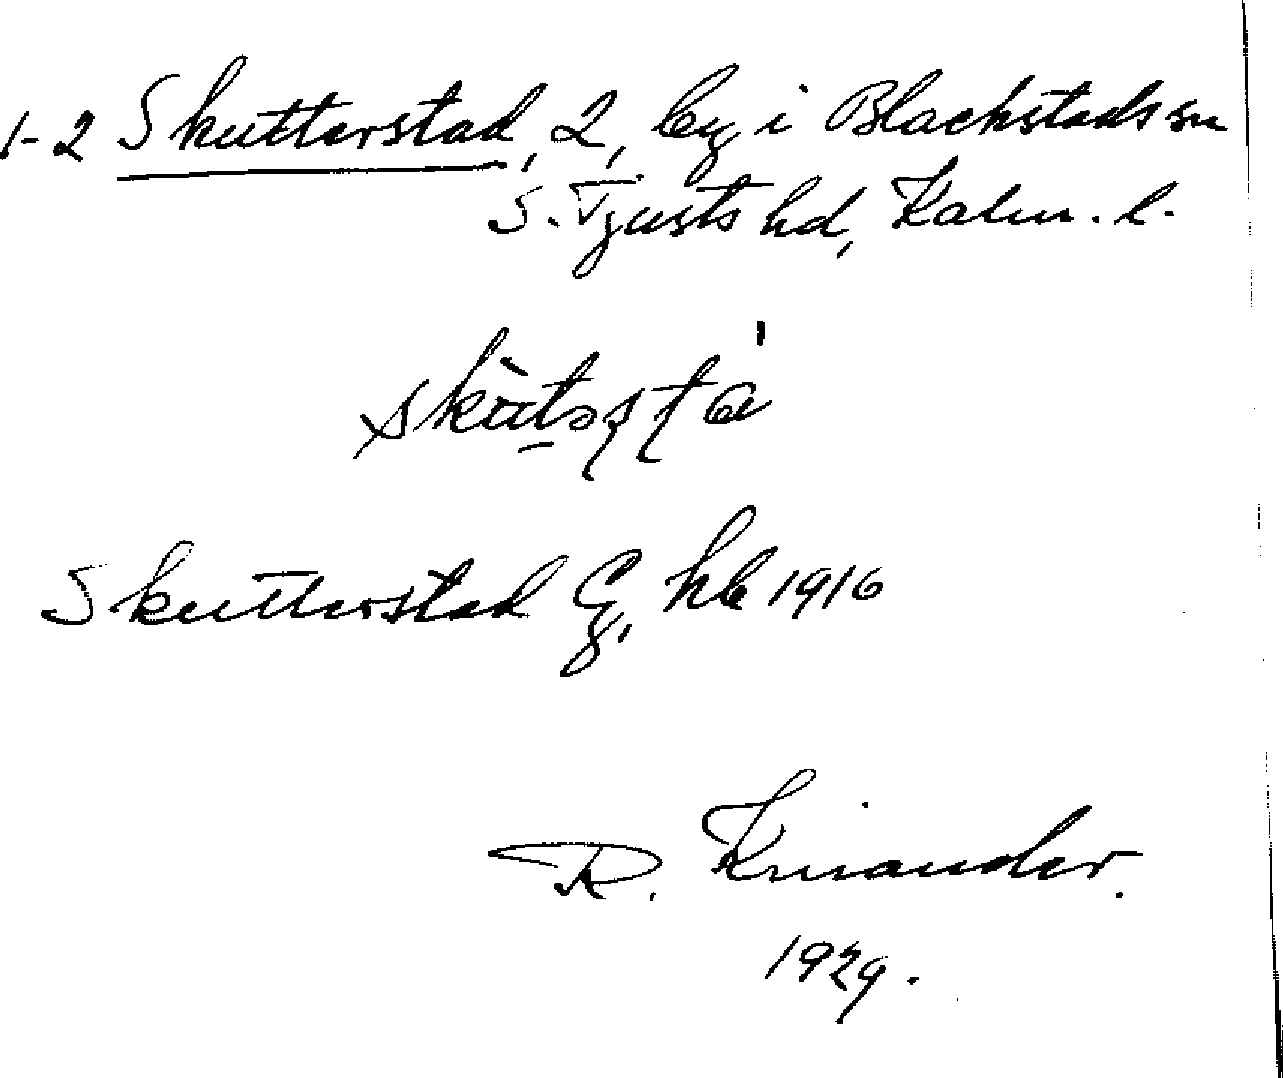 1-2 Skutterstad, 2, by i Blackstads sn
S. Tjusts hd, Kalm. l.
Skutterstad G, hb 1916
R. Kinander.
1929.